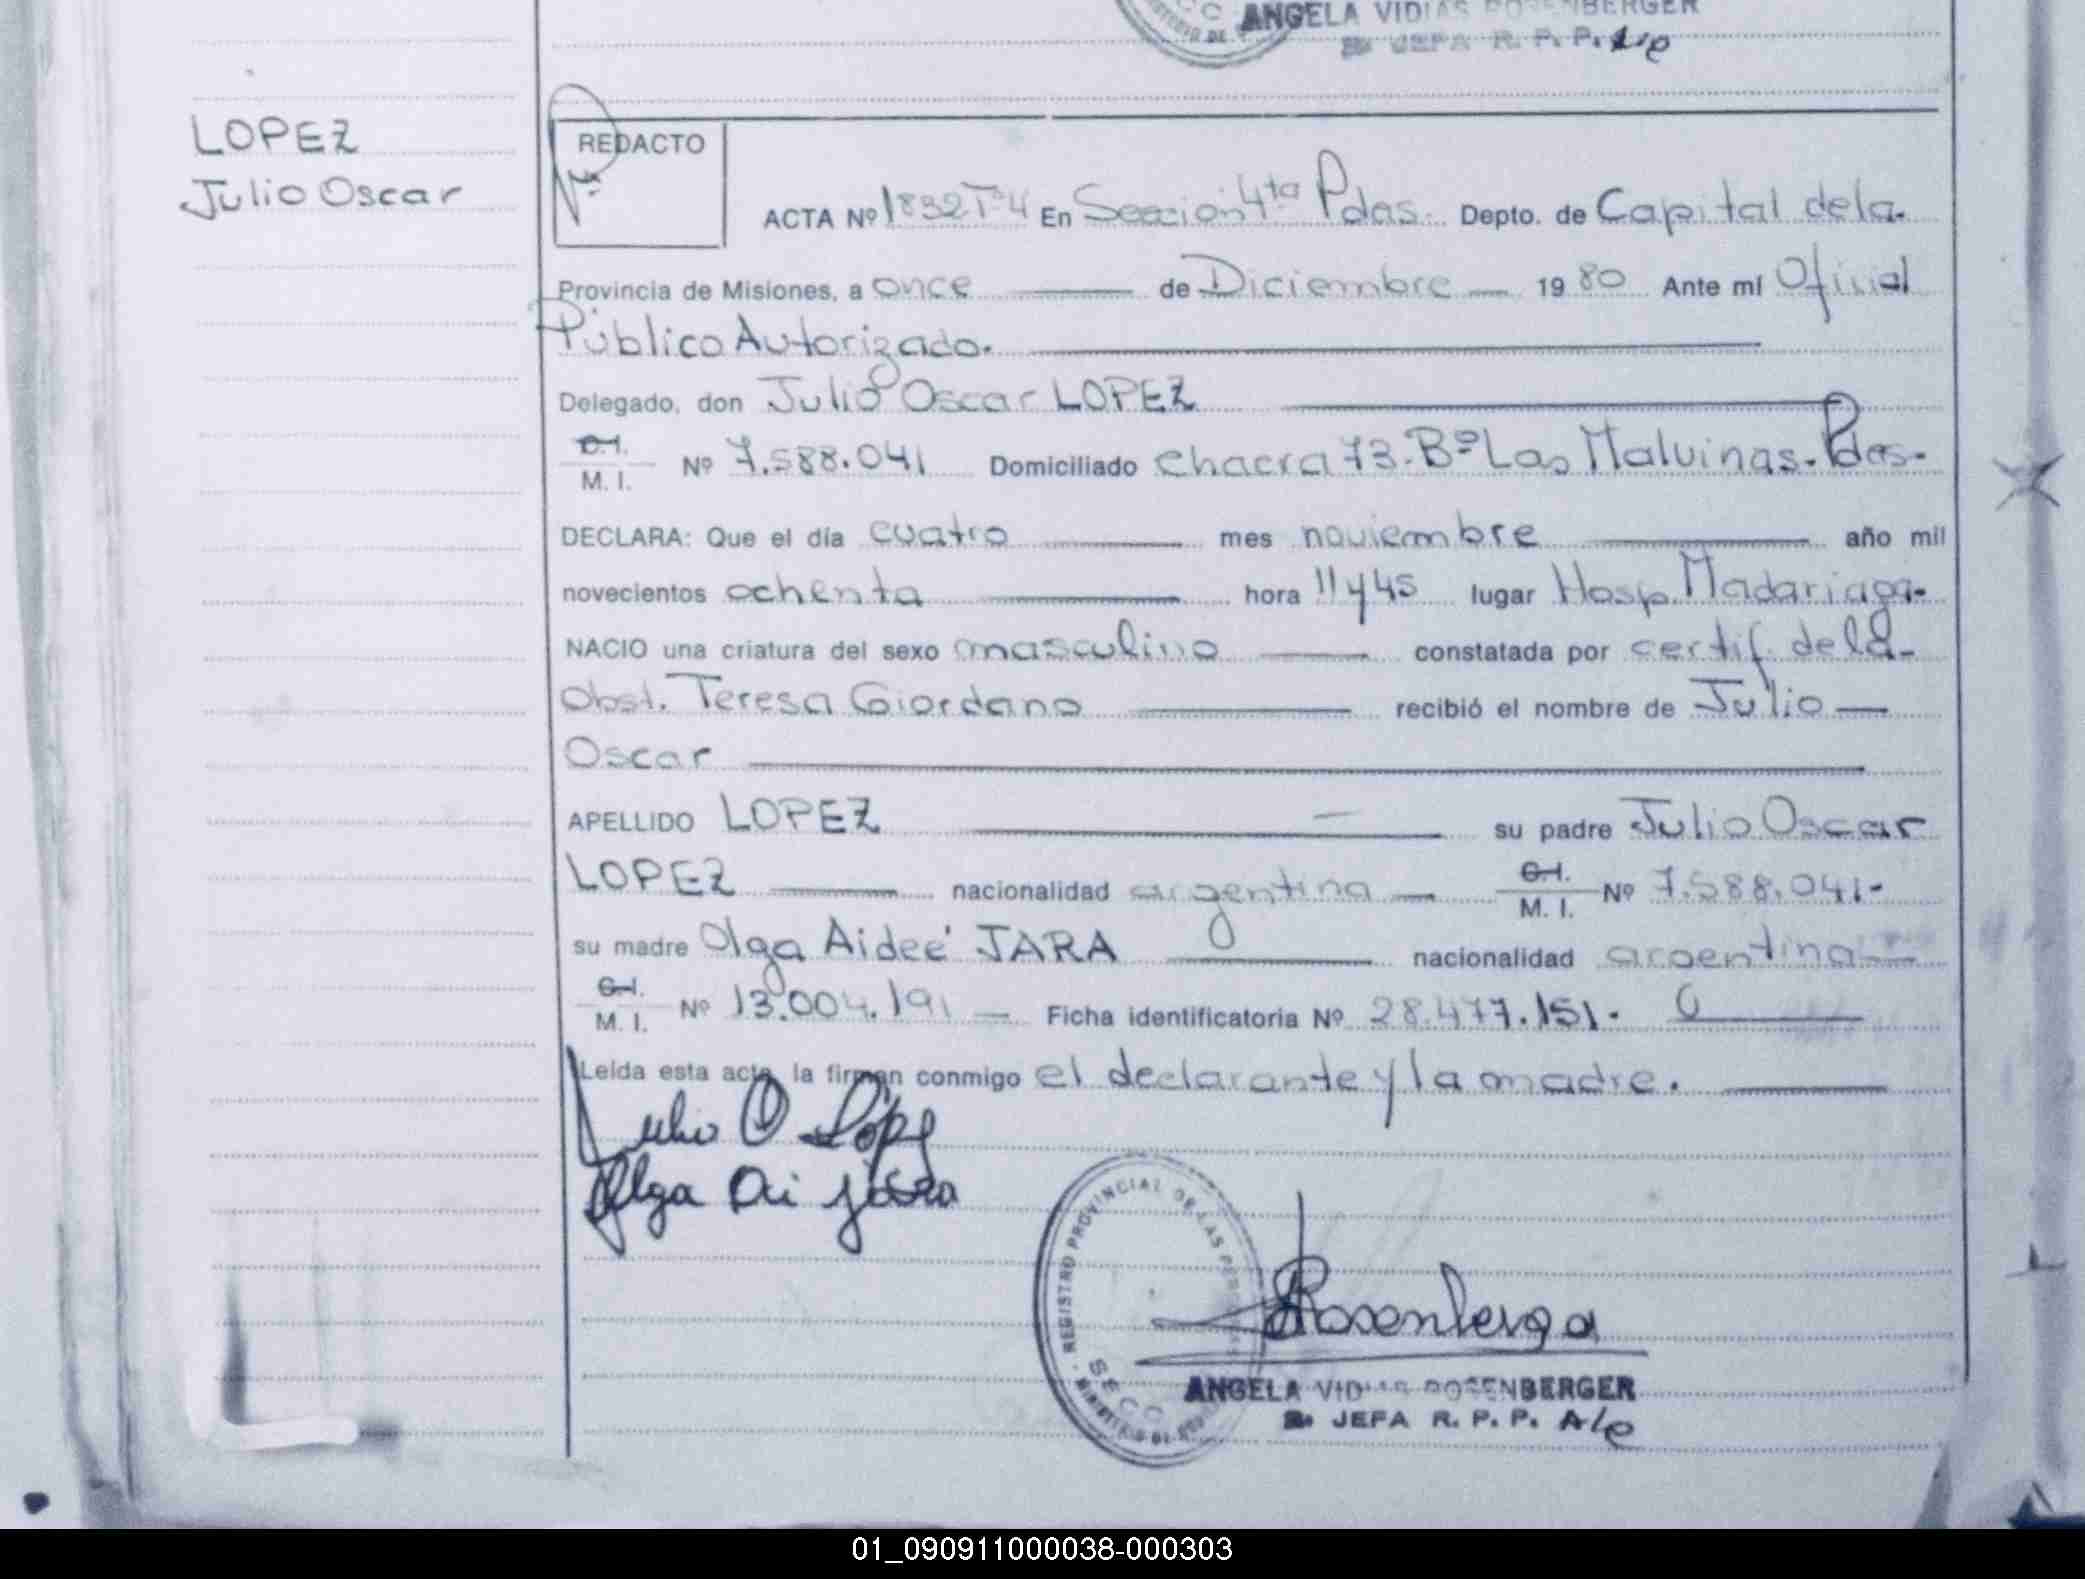 ANGELA VIDIAS ROSENBERGER
JEFA R. P. P. A/e
LOPEZ
Julio Oscar
REDACTO
ACTA Nº 1832 Tº 4 En Sección 4ta Pdas. Depto. de Capital de la.
Provincia de Misiones, a once de Diciembre 19 80 Ante mí Oficial
Público Autorizado.
Delegado, don Julio Oscar LOPEZ
C.I.
M. I. Nº 7.588.041 Domiciliado Chacra 73. Bº Las Malvinas. Pdas.
DECLARA: Que el día cuatro mes noviembre año mil
novecientos ochenta hora 11 y 45 lugar Hosp. Madariaga.
NACIO una criatura del sexo masculino constatada por certif. de la
Obst. Teresa Giordano recibió el nombre de Julio
Oscar
APELLIDO LOPEZ su padre Julio Oscar
LOPEZ nacionalidad argentina C.I.
M. I. Nº 7.588.041-
su madre Olga Aideé JARA nacionalidad argentina
C.I.
M. I. Nº 13.004.191 Ficha identificatoria Nº 28.477.151.
Leída esta acta, la firman conmigo el declarante y la madre.
Julio O Lopez
Olga Ai Jara
REGISTRO PROVINCIAL DE LAS PERSONAS
SECC
Rosenberger
ANGELA VIDIAS ROSENBERGER
JEFA R. P. P. A/e
01_090911000038-000303